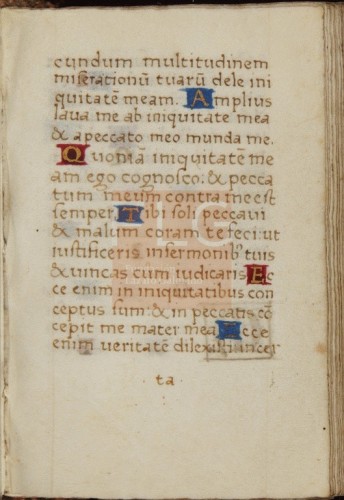 cundum multitudinem
miserationū tuarū dele ini
quitatē meam. Amplius
laua me ab iniquitate mea
& a peccato meo munda me.
Quoniā iniquitatē me
am ego cognosco: & pecca
tum meum contra me est
semper. Tibi soli peccaui
& malum coram te feci: ut
iustificeris in sermonib⁹ tuis
& uincas cum iudicaris Ec
ce enim in iniquitatibus con
ceptus sum: & in peccatis cō
cepit me mater mea. Ecce
enim veritatē dilexisti incer
· ta ·